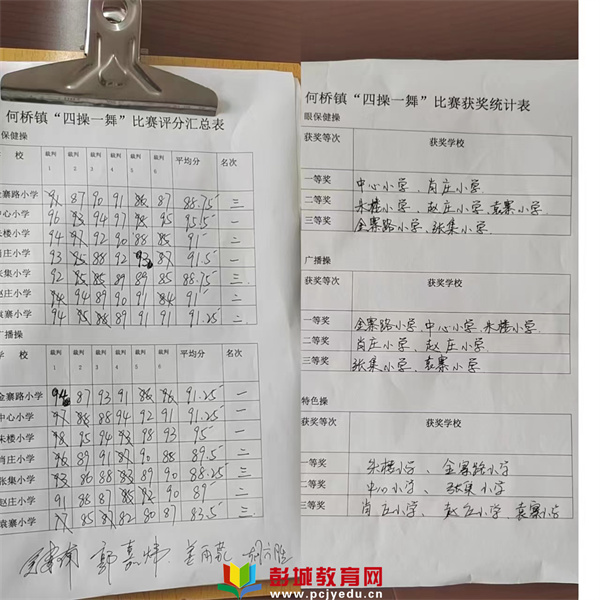 何桥镇“四操一舞”比赛评分汇总表
保健操
校 裁判1 裁判2 裁判3 裁判4 裁判5 裁判6 平均分 名次
金寨路小学 87 90 91 87 88.75 三
中心小学 96 94 97 95 95.5 一
朱楼小学 94 92 90 88 91 二
肖庄小学 93 88 92 93 87 91.5 一
张集小学 92 85 89 89 85 88.75 三
赵庄小学 94 89 90 91 91 二
袁寨小学 94 89 91 91 91.25 二
广播操
学 校 裁判1 裁判2 裁判3 裁判4 裁判5 裁判6 平均分 名次
金寨路小学 94 87 93 91 91.25 一
中心小学 88 94 92 91 91.25 一
朱楼小学 95 94 98 93 95 一
肖庄小学 89 91 90 88 89.5 二
张集小学 86 88 89 90 88.25 三
赵庄小学 91 88 87 90 89 二
袁寨小学 85 82 80 87 83.5 三
何桥镇“四操一舞”比赛获奖统计表
眼保健操
获奖等次 获奖学校
一等奖 中心小学、肖庄小学
二等奖 朱楼小学、赵庄小学、袁寨小学
三等奖 金寨路小学、张集小学
广播操
获奖等次 获奖学校
一等奖 金寨路小学 中心小学、朱楼小学
二等奖 肖庄小学、赵庄小学
三等奖 张集小学、袁寨小学
特色操
获奖等次 获奖学校
一等奖 朱楼小学、金寨路小学
二等奖 中心小学、张集小学
三等奖 肖庄小学、赵庄小学 袁寨小学
彭城教育网
www.pcjyedu.cn